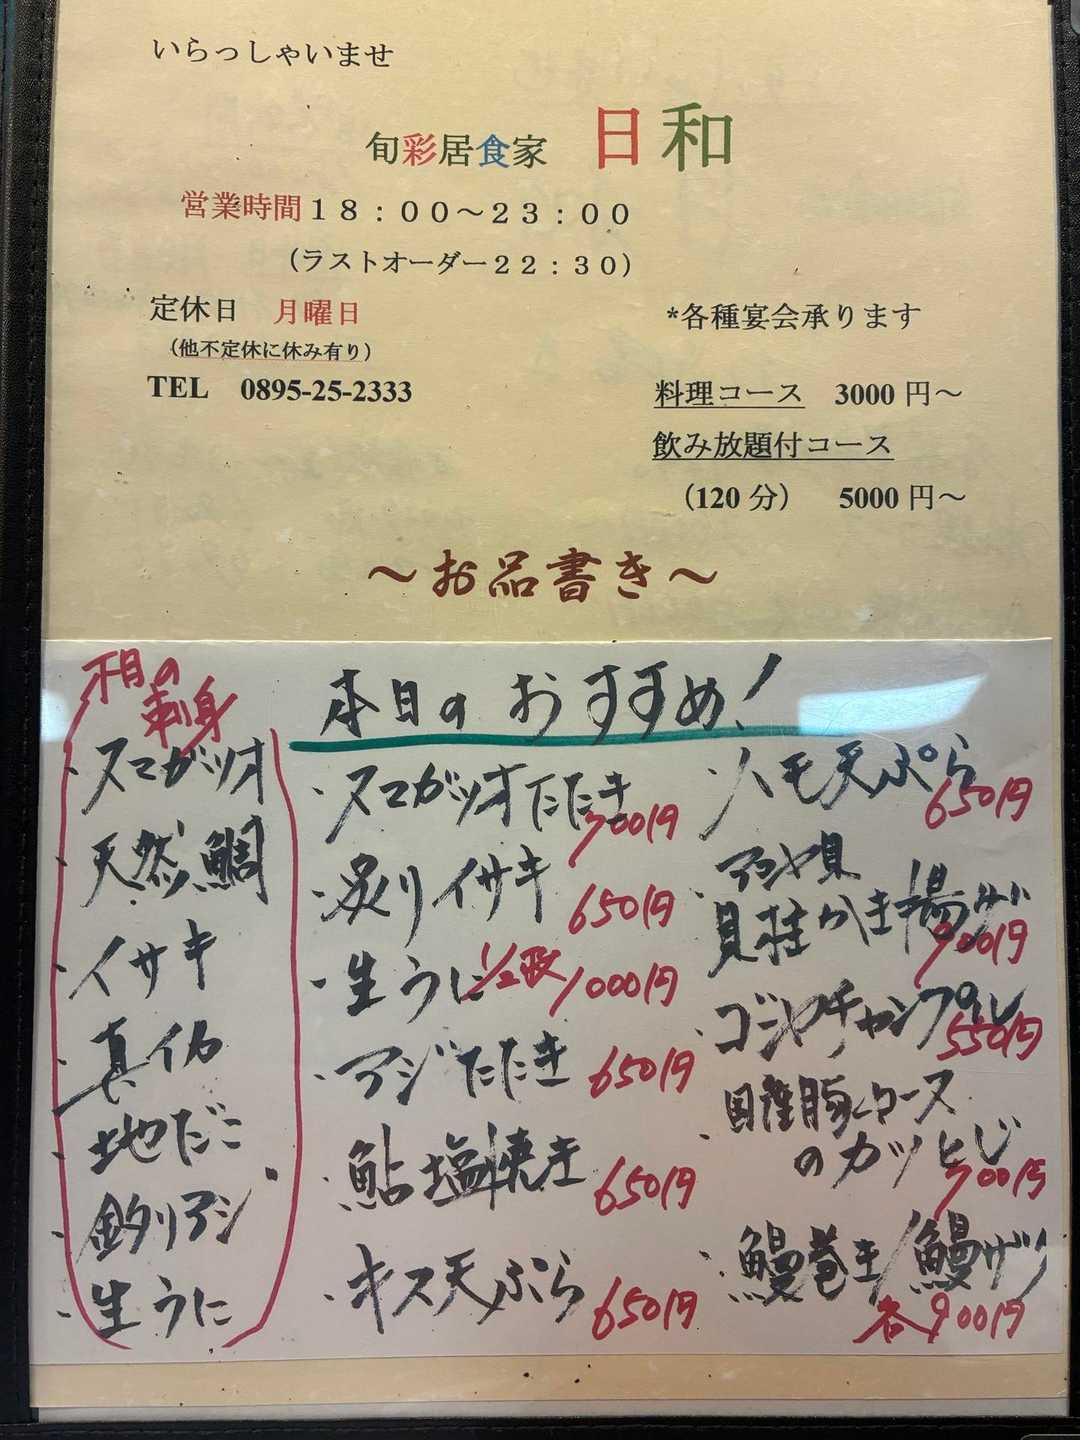 いらっしゃいませ
旬彩居食家 日和
営業時間18：00～23：00
（ラストオーダー22：30）
定休日 月曜日
（他不定休に休み有り）
TEL 0895-25-2333
*各種宴会承ります
料理コース 3000円～
飲み放題付コース
（120分） 5000円～
～お品書き～
本日の
刺身
・スマガツオ
・天然鯛
・イサキ
・真イカ
・地だこ
・釣りアジ
・生うに
本日のおすすめ！
・スマガツオたたき
700円
・炙りイサキ 650円
・生うに1/2枚 1000円
・アジたたき 650円
・鮎塩焼き 650円
・キス天ぷら 650円
・ハモ天ぷら
650円
・アコヤ貝
貝柱かき揚げ
900円
・ゴーヤチャンプル
550円
・国産豚ロース
のカツとじ
700円
・鰻巻き/鰻ザク
各900円